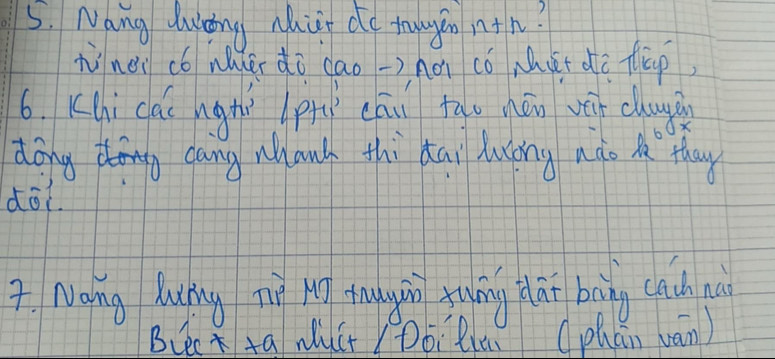 5. Năng lượng nhiệt đc truyền ntn?
từ nơi có nhiệt độ cao -> nơi có nhiệt độ thấp,
6. Khi các ngtử /ptử cấu tạo nên vật chuyển
động càng nhanh thì đại lượng nào k thay
đổi.
7. Năng lượng từ MT truyền xuống đất bằng cách nào
Bức xạ nhiệt / Đối lưu (phân vân)